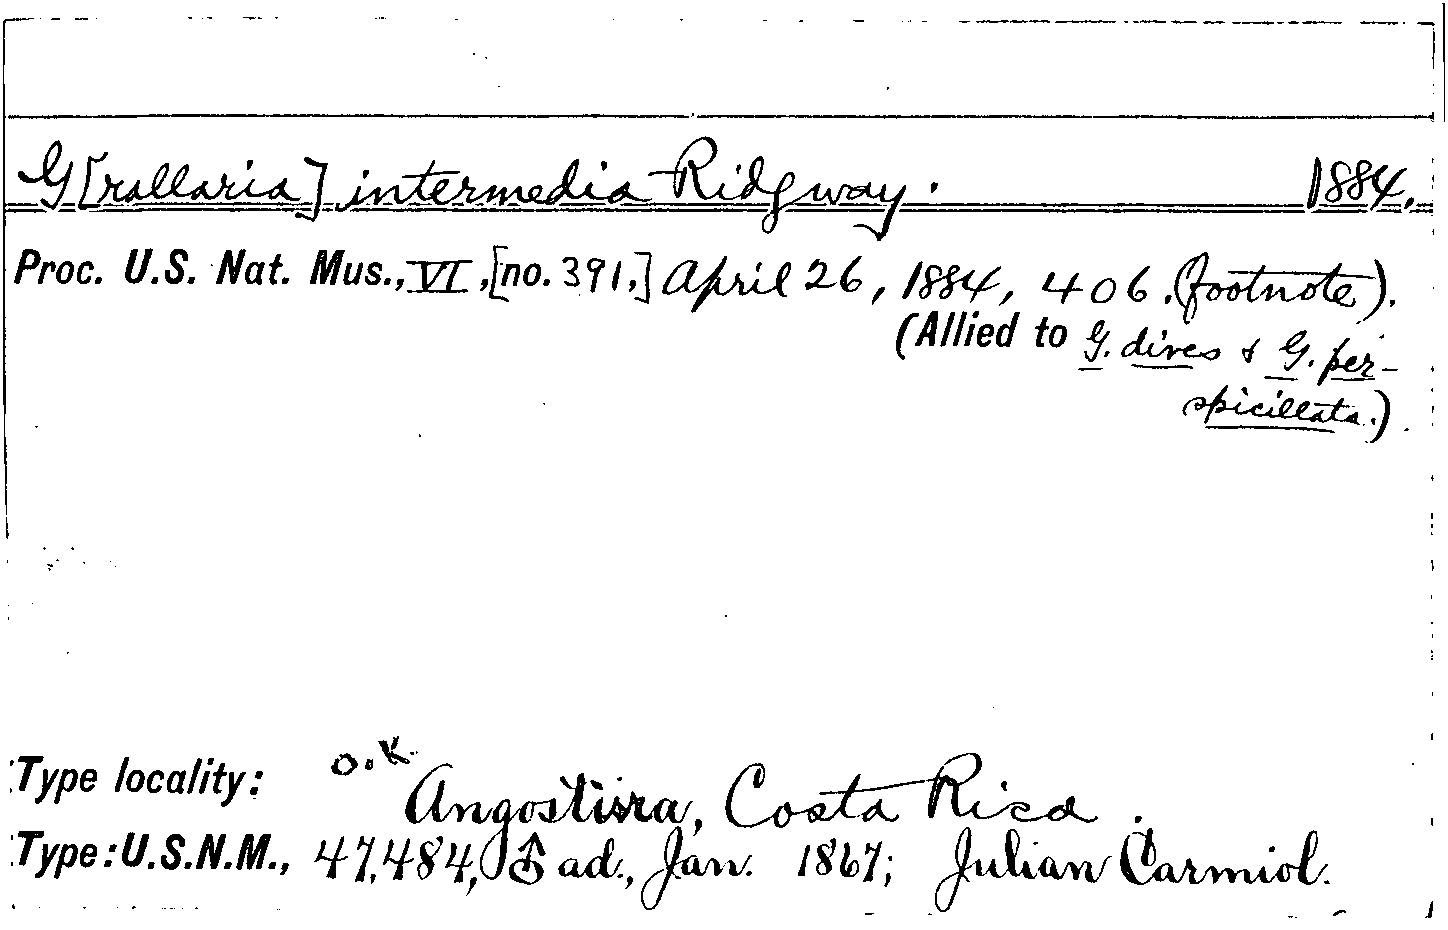 G[rallaria] intermedia Ridgway. 1884.
Proc. U.S. Nat. Mus., VI, [no. 391,] April 26, 1884, 406. (footnote).
(Allied to G. dives & G. per-
spicillata.)
Type locality: O.K. Angostura, Costa Rica.
Type: U.S.N.M., 47,484, ♂ ad., Jan. 1867; Julian Carmiol.